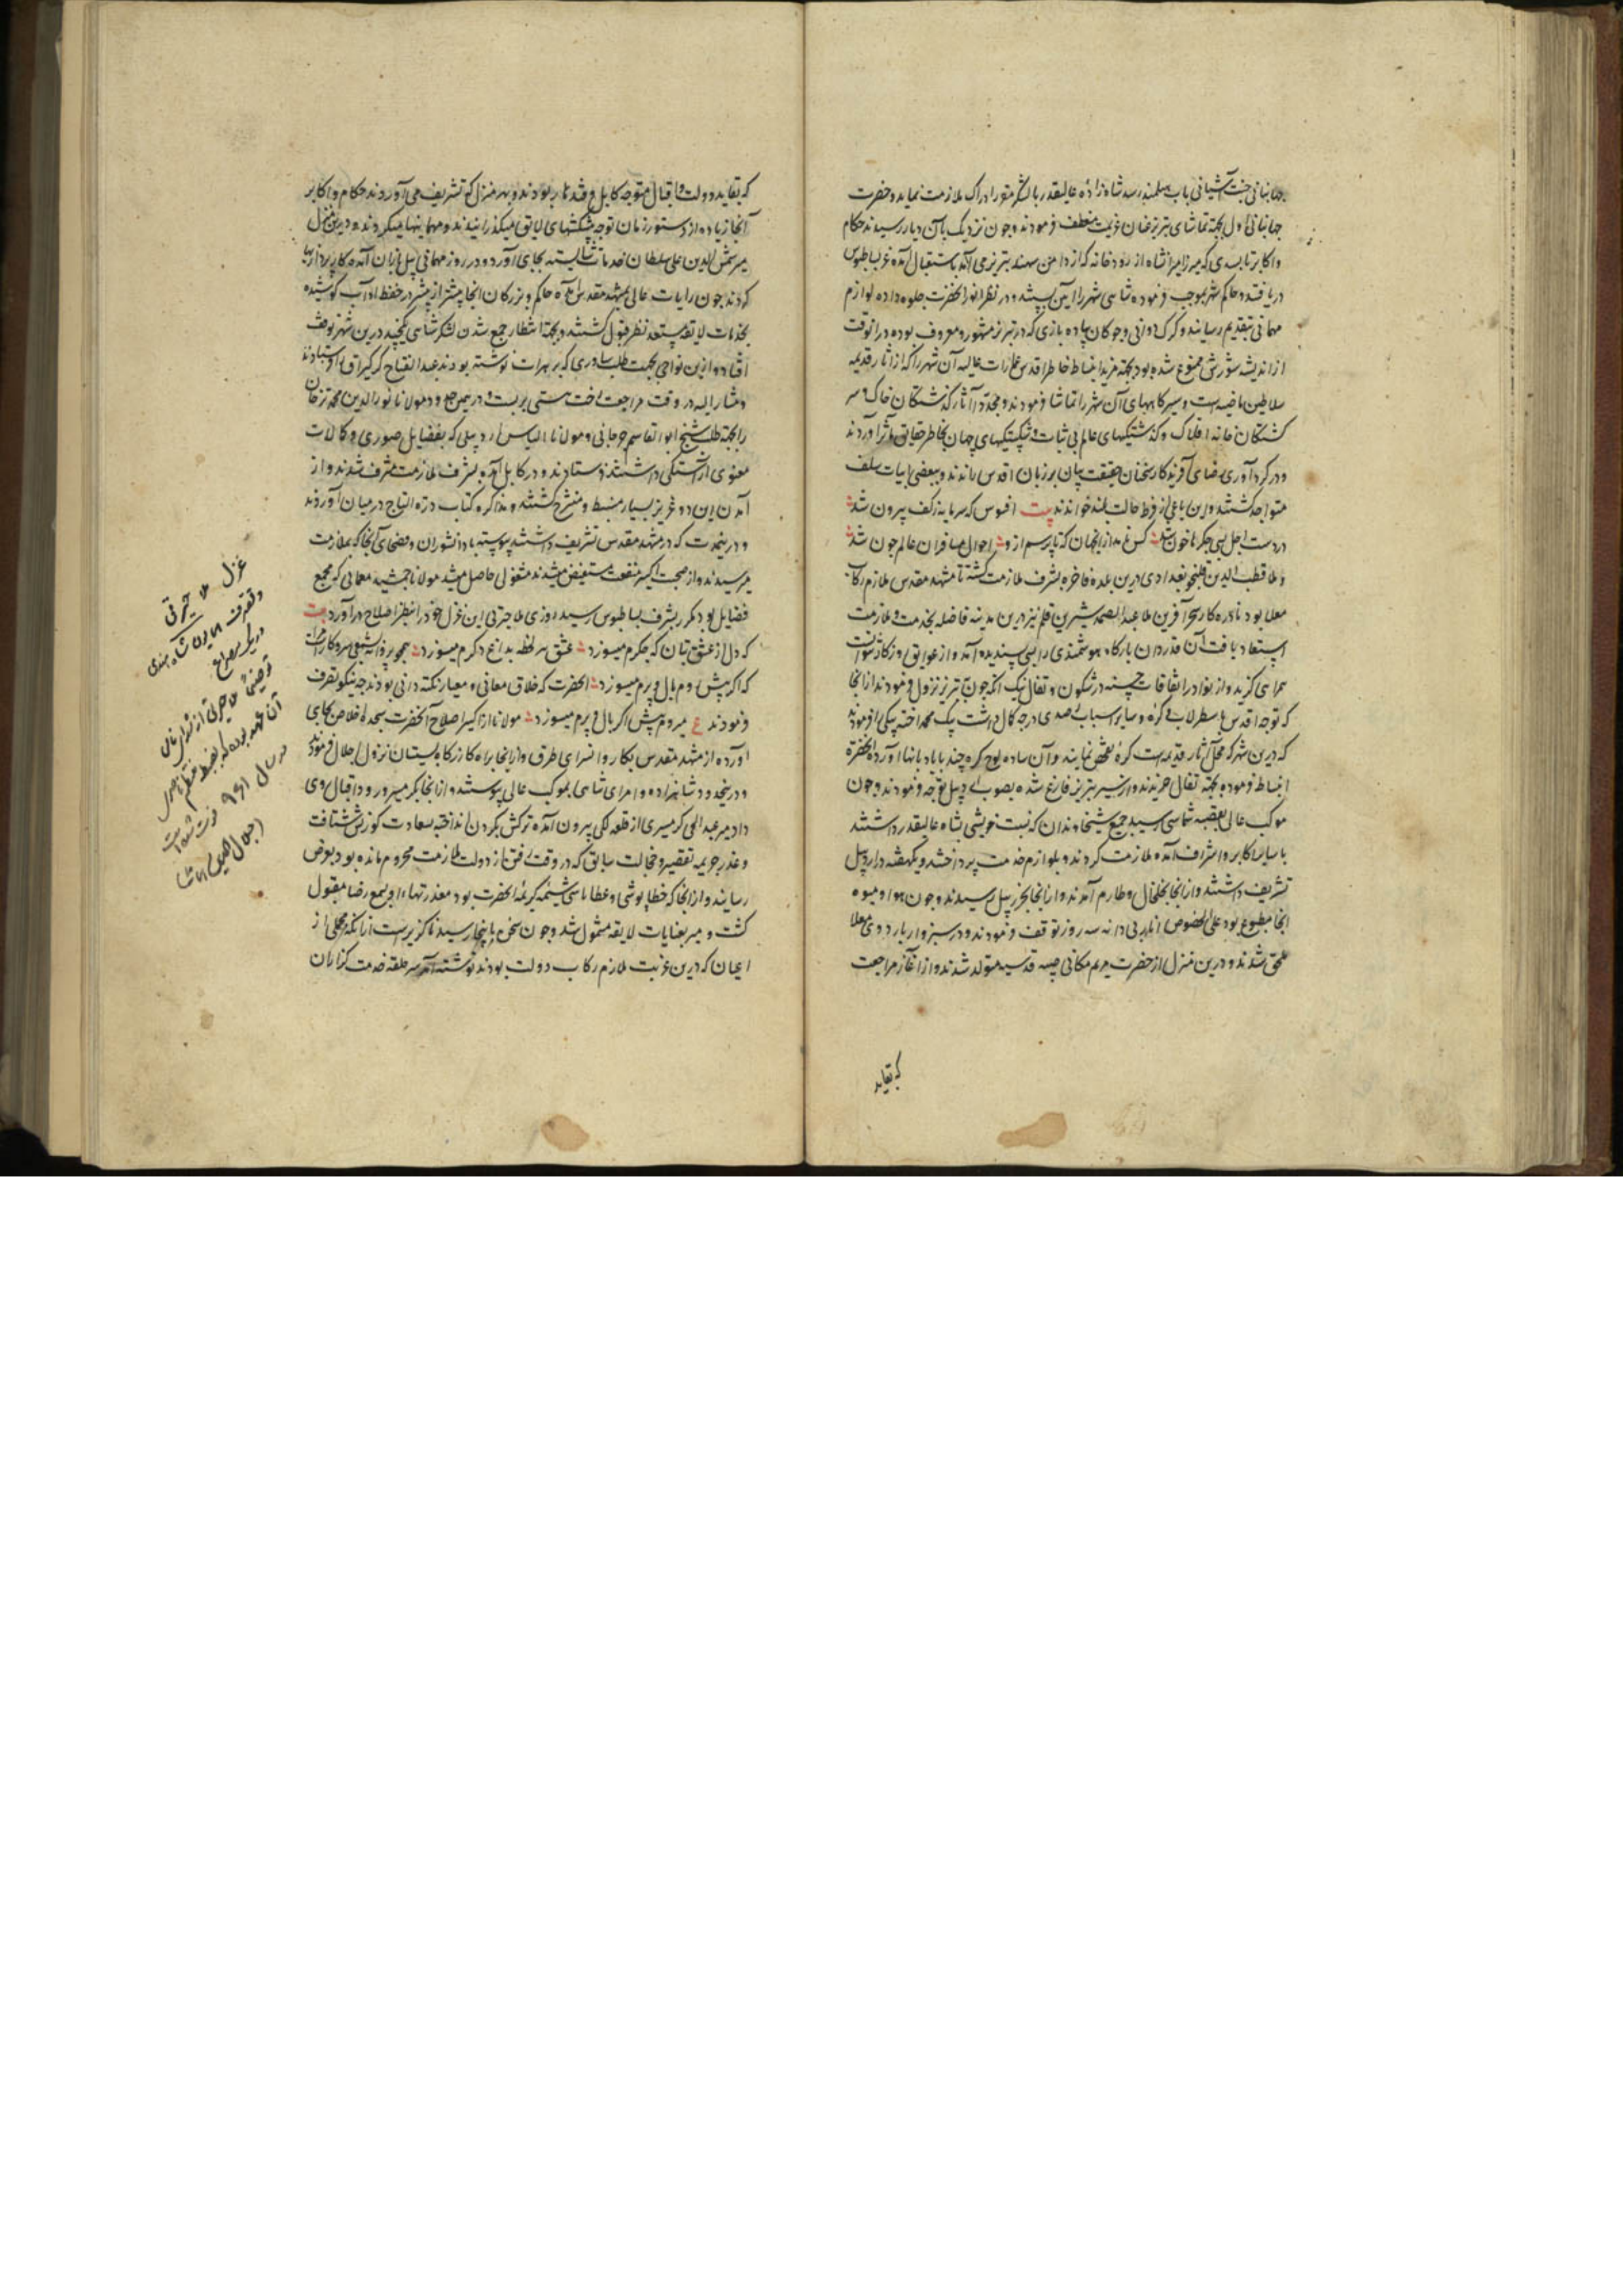 جهانبانی جنت آشیانی باب هلمند رسد شاهزاده عالیقدر با لشکر مقرر ادراک ملازمت نماید و حضرت
جهانبانی اول بجهة تماشای تبریز عنان عزیمت منعطف فرمودند و چون نزدیک بآن دیار رسیدند حکام
و اکابر تا بپلی که میرزا میرانشاه از رودخانه که از دامن سهند بتبریز می آید باستقبال آمده غر بساطبوس
دریافتند و حاکم شهر بموجب فرموده شاهی شهر را آیین بسته در نظر انور آنحضرت جلوه داده لوازم
مهمانی بتقدیم رسانید و گرک دوانی و چوکان پیاده بازی که در تبریز مشهور و معروف بوده در آنوقت
از اندیشه شورش ممنوع شده بود بجهة مزید انبساط خاطر اقدس عمارات عالیه آن شهر را که از آثار قدیمه
سلاطین ماضیه است و سیرگاههای آن شهر را تماشا فرمودند و مجددا آثار گذشتگان خاک و سر
گشتگان خانه افلاک و گذشتگیهای عالم بی ثبات و شکستگیهای جهان بخاطر حقایق مآثر آوردند
و در گردآوری رضای آفریدگار سخنان حقیقت بیان بر زبان اقدس راندند و ببعضی ابیات سلف
متواجد گشتند و این رباعی از فرط حالت بلند خواندند بیت افسوس که سرمایه ز کف بیرون شد
در دست اجل بسی جگرها خون شد کس نامد از آنجهان که تا پرسم ازو احوال مسافران عالم چون شد
و ملا قطب الدین بغدادی درین بلده فاخره بشرف ملازمت گشته تا مشهد مقدس ملازم رکاب
معلا بود نادره کار سحرآفرین ملا عبد الصمد شیرین قلم نیز درین مدینه فاضله بخدمت و ملازمت
استعاد یافت آن قدردان بارگاه هوشمندی را بسی پسندیده آمد و از عوایق روزگار نتوانست
همراهی گزید و از نوادر اتفاقات حسنه در شگون و تفال نیک آنکه چون بتبریز نزول فرمودند از آنجا
که توجه اقدس باسطرلاب و کره و سایر اسباب رصدی درجه کمال داشت پیک محمد آخته بیکی را فرمودند
که درین شهر که محل آثار قدیمه است کره تفحص نمایند و آن ساده لوح کره چند با یابوها آورد آنحضرت
انبساط فرموده بجهة تفال خریدند و از سیر تبریز فارغ شده بصوب اردبیل توجه فرمودند و چون
موکب عالی بقصبه شماسی رسید جمیع شیخاوندان که نسبت خویشی بشاه عالیقدر داشتند
با سایر اکابر و اشراف آمده ملازمت کردند و بلوازم خدمت پرداختند و یکهفته در اردبیل
تشریف داشتند و از آنجا بخلخال و طارم آمدند و از آنجا بخرزبیل رسیدند و چون هوا و میوه
آنجا مطبوع بود علی الخصوص انار بی دانه سه روز توقف فرمودند و در سبزوار باردوی معلا
ملحق شدند و درین منزل از حضرت مریم مکانی صبیه قدسیه متولد شدند و از آغاز مراجعت
که بقاید
که بقاید دولت و اقبال متوجه کابل و قندهار بودند و بهر منزل که تشریف می آوردند حکام و اکابر
آنجا زیاده از دستور زمان توجه پیشکشهای لایق میگذرانیدند و مهمانیها میکردند و درین منزل
میر شمس الدین علی سلطان خدمات شایسته بجای آورد و در روز مهمانی
کردند چون رایات عالی بمشهد مقدس آمده حاکم و بزرگان آنجا بیشتر از پیشتر در حفظ آداب کوشیده
بخدمات لایقه مستعد نظر قبول گشتند و بجهة انتظار جمع شدن لشکر شاهی یکچند درین شهر توقف
افتاد و ازین نواحی بجهت طلب ساوری که بر هرات نوشته بودند عبد الفتاح کرکیراق را فرستادند
و مشار الیه در وقت مراجعت رخت هستی بربست و در همین حدود مولانا نور الدین محمد ترخان
را بجهة طلب شیخ ابو القاسم جرجانی و مولانا الیاس اردبیلی که بفضایل صوری و کمالات
معنوی آراستگی داشتند فرستادند و در کابل آمده بشرف ملازمت مشرف شدند و از
آمدن این دو عزیز بسیار منبسط و منشرح گشتند و مذاکره کتاب درة التاج در میان آوردند
و درینمدت که در مشهد مقدس تشریف داشتند پیوسته با دانشوران و فضلای آنجا که بملازمت
میرسیدند و از صحبت اکسیر منفعت مستفیض میشدند مشغولی حاصل میشد مولانا جمشید معمایی که مجمع
فضایل بود مکرر بشرف بساطبوس رسید روزی ملا حیرتی این غزل خود را بنظر اصلاح درآورد بیت
که دل از عشق بتان که جگرم میسوزد عشق هر لحظه بداغ دگرم میسوزد همچو پروانه بشمعی سر و کار است
که اگر پیش روم بال و پرم میسوزد آنحضرت که خلاق معانی و معیار نکته دانی بودند چه نیکو تصرف
فرمودند ع میروم پیش اگر بال و پرم میسوزد مولانا از اکسیر اصلاح آنحضرت سجده اخلاص بجای
آورده از مشهد مقدس بکاروانسرای طرق و از آنجا براه کاه بسیستان نزول اجلال فرمودند
و درینحدود شاهزاده و امرای شاهی بموکب عالی پیوستند و از آنجا بگرمسیر ورود اقبال روی
داد میر عبد الحی گرمسیری از قلعه لکی بیرون آمده ترکش بگردن انداخته بسعادت کورنش شتافت
و عذر جریمه تقصیر و خجالت سابق که در وقت رفتن از دولت ملازمت محروم مانده بود بعرض
رسانید و از آنجا که خطاپوشی و عطاپاشی شیمه کریمه آنحضرت بود معذرتهاء او بسمع رضا مقبول
گشت و میر بعنایات لایقه مشمول شد و چون سخن باینجا رسید ناگزیر است از آنکه مجملی از
اعیان که درین غربت ملازم رکاب دولت بودند نوشته آمد سر حلقه خدمت گزاران
غزل ملا حیرتی
و تصرف همایون شاه هندی
در یک مصراع
در سال ۹۶۱ فوت شده است